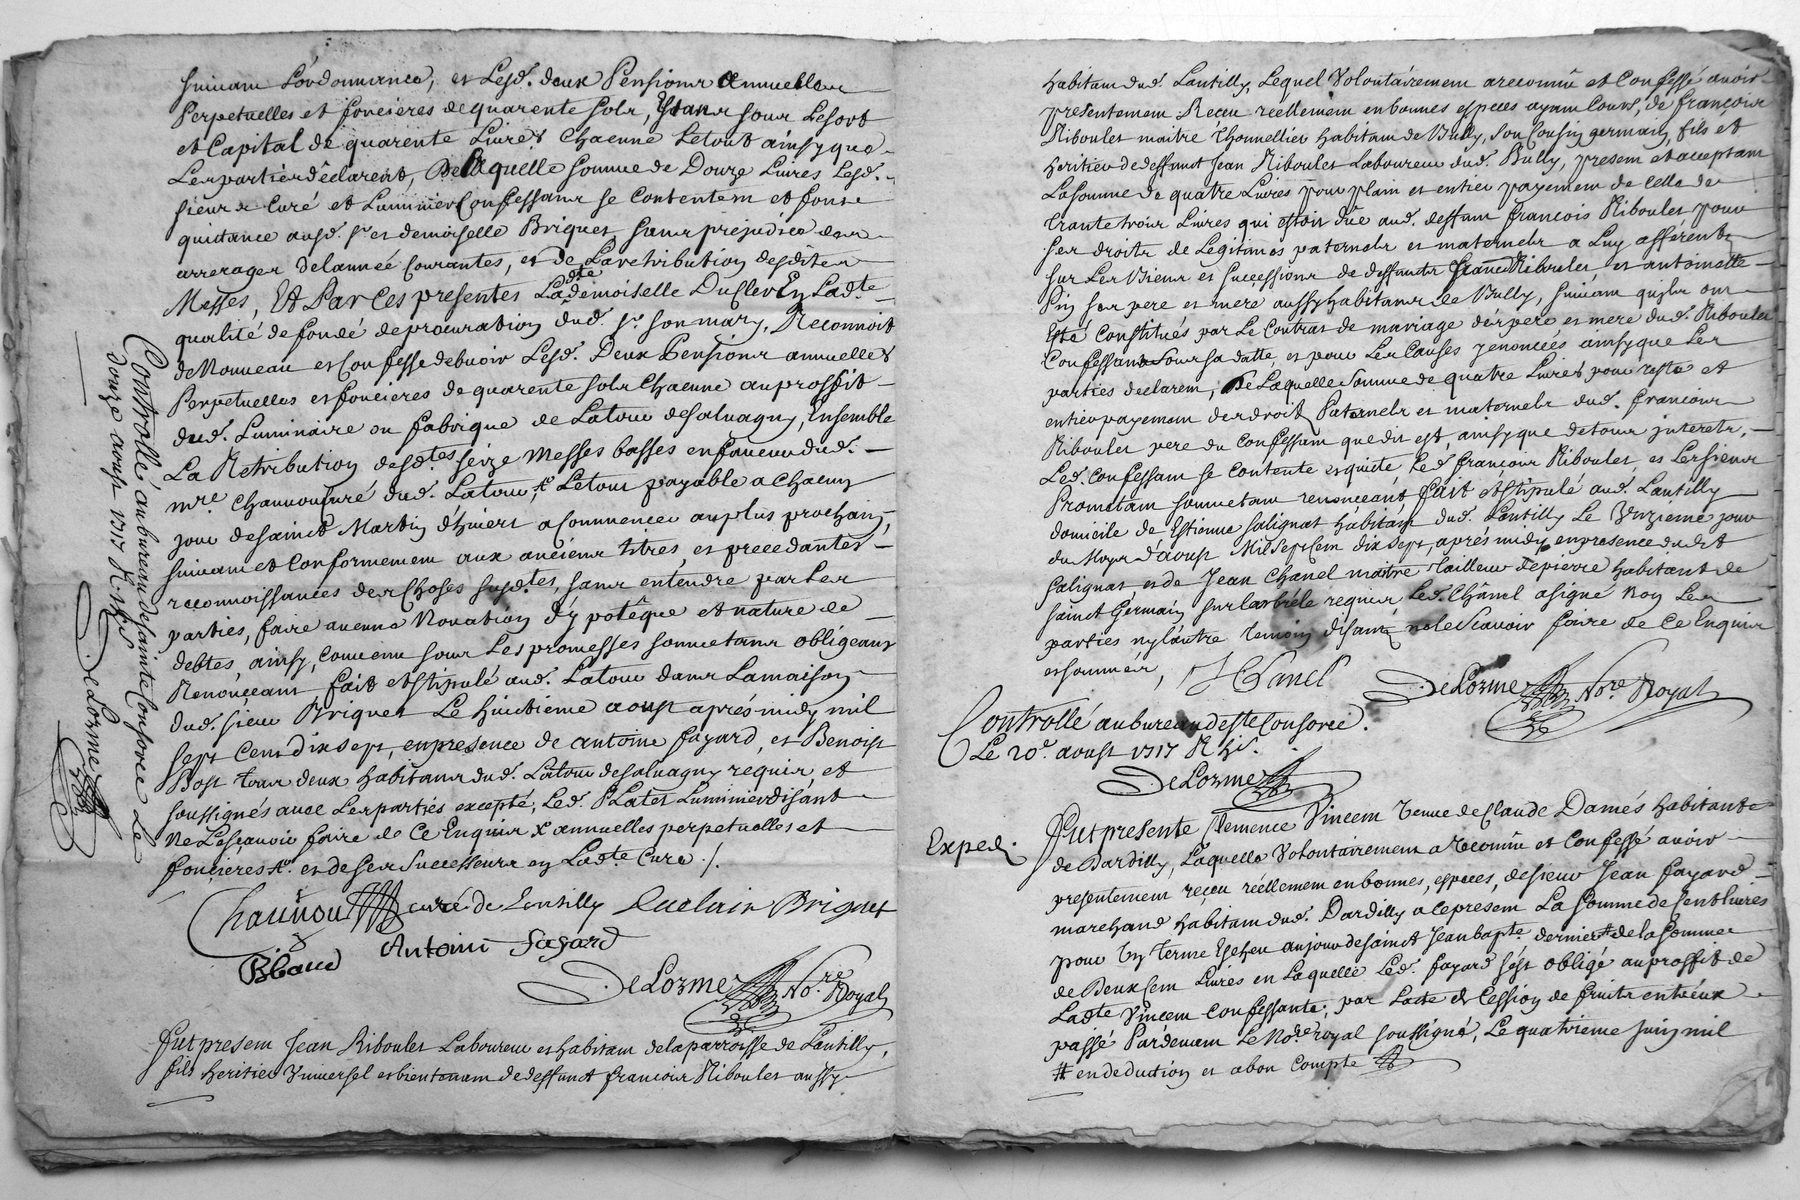 suivant L'ordonnance, et Lesd. deux Pensions annuelles
Perpetuelles et foncieres de quarente sols, Estans sous Lesort
et Capital de quarente Livres Chacune Letout ainsy que
Les parties déclarent, De Laquelle somme de Douze Livres Lesd.
sieurs Curé et Luminier Confessans se contentent et font
quittance ausd. sr et demoiselle Briquet sans prejudice des
arrerages delannée Courantes, et de La retribution desdites
Messes, Et Par Ces presentes Ladte demoiselle Ducler En Ladte
qualité de fondé de procuration dud. sr son mary, Reconnoit
de Nouveau et Confesse debvoir Lesd. Deux Pensions annuelles
Perpetuelles et foncieres de quarente sols Chacune au proffit
dud. Luminaire ou fabrique de Latour desalvagny, Ensemble
La Retribution desdtes seize Messes basses en faveur dud.
mre Chauvou Curé dud. Latour, Le tout payable a Chacun
jour desainct Martin d'hivert a Commencer au plus prochain,
suivant et Conformement aux anciens titres, et precedantes
reconnoissances des Choses susdtes, sans entendre par Les
parties, faire aucune Novation d'ypotêque et nature de
debtes ainsy, Convenu sous Les promesses soumettans obligeans
Renonceans fait et stipulé aud. Latour dans Lamaison
dud. sieur Briquet Le huictieme aoust aprés midy mil
sept Cent dix sept, en presence de antoine fayard, et Benoist
Bost tous deux habitans dud. Latour desalvagny requis, et
soussignés avec Les parties excepté, Led. PLatet Luminier disant
Ne Le scavoir faire de Ce Enquis X annuelles perpetuelles et
foncieres et de ses Successeurs en Ladte Cure ./.
Chauvou curé de Lentilly Duclair Briquet
Antoine Fayard
DeLorme Nore Royal
Controllé au bureau de sainte Consorce Le
douze aoust 1717
DeLorme
Fut present Jean Riboulet Laboureur et habitant de la parroisse de Lantilly,
fils heritier Vniversel et bientenant de deffunct francois Riboulet aussy
habitant dud. Lantilly, Lequel Volontairement a reconnû et Confessé avoir
presentement Receu réellement en bonnes especes ayant Cours, de françois
Riboulet maitre Thonnellier habitant de Bully, son Cousin germain, fils et
heritier de deffunct Jean Riboulet Laboureur dud. Bully, present et acceptant
La somme de quatre Livres pour plain et entier payement de Celle de
trante trois Livres qui estoit dûe aud. deffunt francois Riboulet pour
ses droits de Legitimes paternels et maternels a Luy afferents
sur Les Biens et successions de deffuncts Jean Riboulet, et antoinette
Pin ses pere et mere aussy habitans de Bully, suivant quils ont
Esté Constitués par Le Contrat de mariage desd. pere et mere dud. Riboulet
Confessant sous sa datte, et pour Les Causes y enoncées ainsy que Les
parties declarent, De Laquelle somme de quatre Livres pour reste et
entier payement des droits Paternels et maternels dud. francois
Riboulet pere du Confessant que dit est, ainsy que de tous interets,
Led. Confessant se contente et quitte Led. francois Riboulet, et Les siens
Promettant soumettant renonceant fait et stipulé aud. Lantilly
domicile de Estienne salignat habitant dud. Lantilly Le Vnzieme jour
du Moys d'aoust Mil Sept Cent dix sept, aprés midy en presence dudit
salignat, et de Jean Chanel maitre tailleur de pierre habitant de
sainct Germain sur Larbrêle requis, Led. Chânel a signé Non Les
parties ny Lautre temoin disant ne Le Scavoir faire de Ce Enquis
et sommés, JChanel
DeLorme Nore Royal
Controllé au bureau de ste Consorce.
Le 20e. aoust 1717
DeLorme
Exped.
Fut presente Clemence Vincent Veuve de Claude Damés habitante
de Dardilly, Laquelle Volontairement a reconnu et Confessé avoir
presentement reçeu réellement en bonnes, especes, de sieur Jean fayard
marchand habitant dud. Dardilly a Ce present La somme de Cent Livres
pour Un terme Escheu au jour de sainct Jean bapte. dernier # de la somme
de Deux Cent Livres en Laquelle Led. fayard s'est obligé au proffit de
Ladte Vincent Confessante, par Lacte de Cession de fruits entreux
passé Pardevant Le Nore royal soussigné, Le quatrieme juin mil
# en deduction et a bon Compte